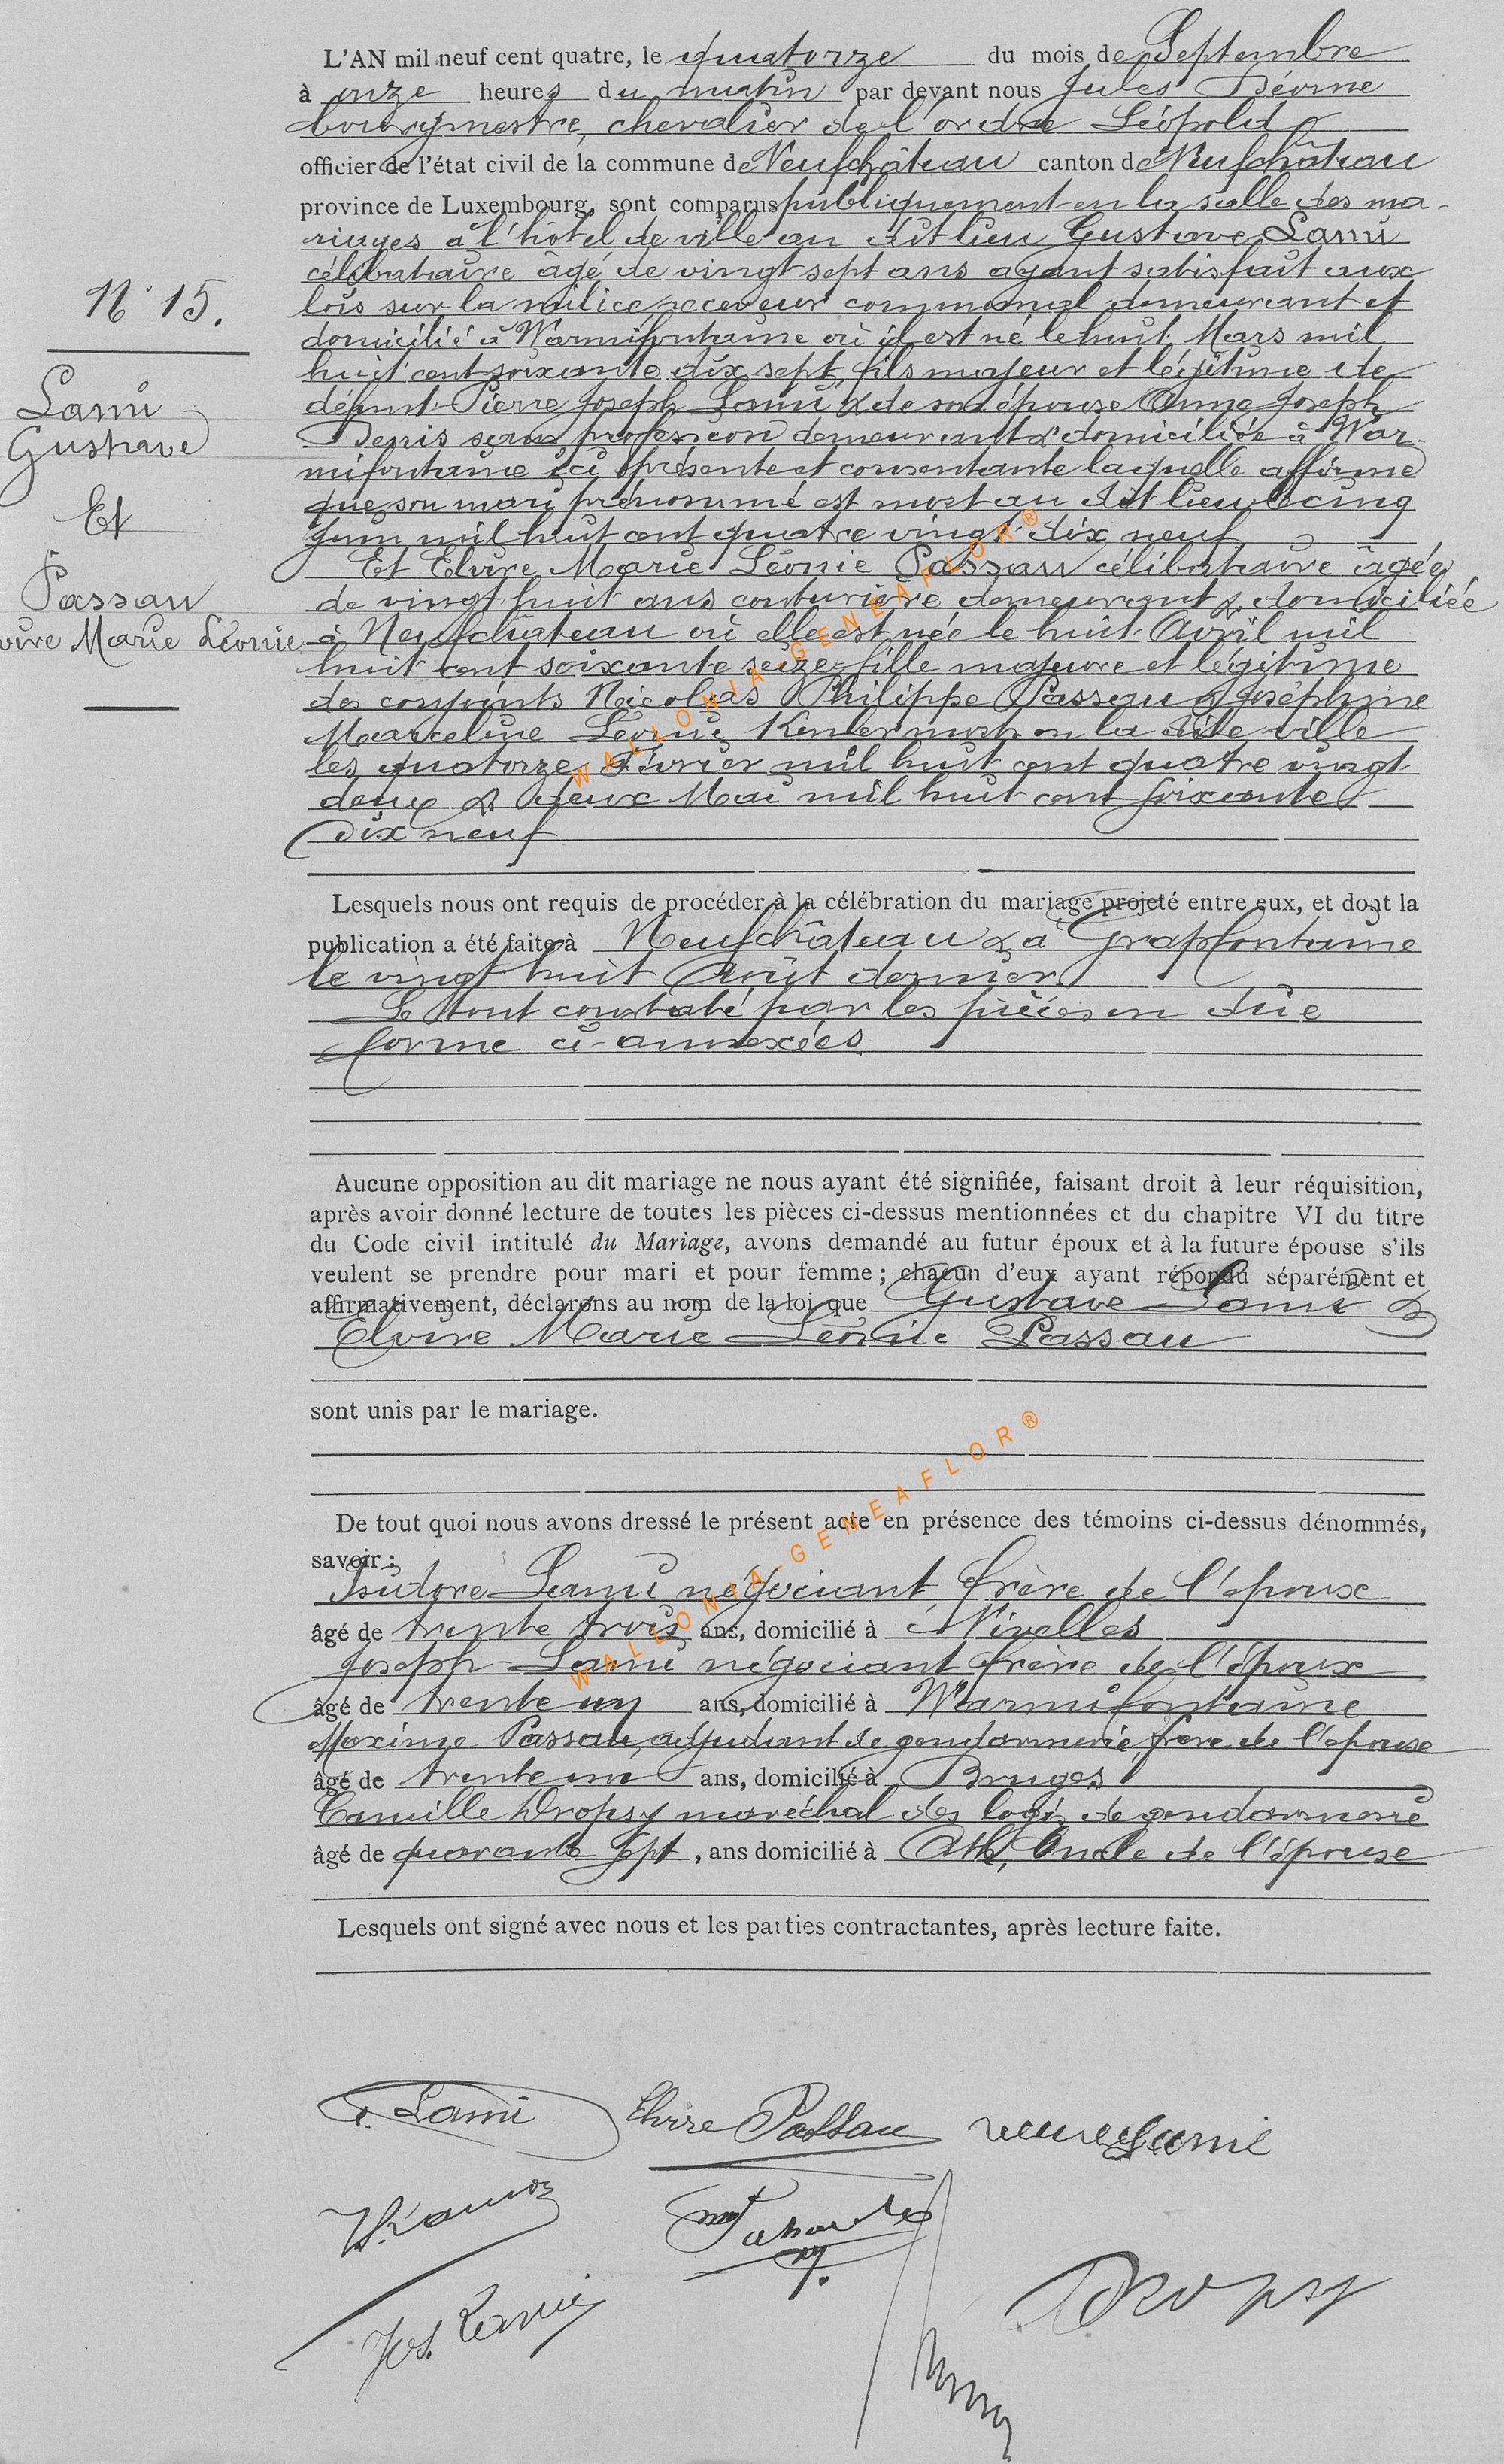 L'AN mil neuf cent quatre, le quatorze du mois de Septembre
à onze heures du matin par devant nous Jules
bourgmestre, chevalier de l'ordre Léopold
officier de l'état civil de la commune de Neufchâteau canton de Neufchâteau
province de Luxembourg, sont comparus publiquement en la salle des ma-
riages à l'hôtel de ville au dit lieu Gustave Lami
célibataire âgé de vingt sept ans ayant satisfait aux
lois sur la milice receveur communal demeurant et
domicilié à Warmifontaine où il est né le huit Mars mil
huit cent soixante dix sept, fils majeur et légitime de
défunt Pierre Joseph Lami & de son épouse Anne Joseph
Denis sans profession demeurant & domiciliée à War-
mifontaine ici présente et consentante laquelle affirme
que son mari prénommé est mort au dit lieu le cinq
Juin mil huit cent quatre vingt dix neuf
Et Elvire Marie Léonie Passau célibataire âgée
de vingt huit ans couturière demeurant & domiciliée
à Neufchâteau où elle est née le huit Avril mil
huit cent soixante seize, fille majeure et légitime
des conjoints Nicolas Philippe Passau & Joséphine
Marceline Léonie morts en la dite ville
les quatorze Février mil huit cent quatre vingt
deux & deux Mai mil huit cent soixante
dix neuf
N° 15.
Lami
Gustave
Et
Passau
vire Marie Léonie
Lesquels nous ont requis de procéder à la célébration du mariage projeté entre eux, et dont la
publication a été faite à Neufchâteau & à Grapfontaine
le vingt huit Août dernier
Le tout constaté par les pièces en due
forme ci-annexées
Aucune opposition au dit mariage ne nous ayant été signifiée, faisant droit à leur réquisition,
après avoir donné lecture de toutes les pièces ci-dessus mentionnées et du chapitre VI du titre
du Code civil intitulé du Mariage, avons demandé au futur époux et à la future épouse s'ils
veulent se prendre pour mari et pour femme ; chacun d'eux ayant répondu séparément et
affirmativement, déclarons au nom de la loi que Gustave Lami &
Elvire Marie Léonie Passau
sont unis par le mariage.
De tout quoi nous avons dressé le présent acte en présence des témoins ci-dessus dénommés,
savoir :
Isidore Lami négociant frère de l'époux
âgé de trente trois ans, domicilié à Nivelles
Joseph Lami négociant frère de l'époux
âgé de trente un ans, domicilié à Warmifontaine
Maxime Passau, adjudant de gendarmerie, frère de l'épouse
âgé de trente un ans, domicilié à Bruges
Camille Dropsy maréchal des logis de gendarmerie
âgé de quarante sept, ans domicilié à Ath, Oncle de l'épouse
Lesquels ont signé avec nous et les parties contractantes, après lecture faite.
G. Lami Elvire Passau veuve Lami
Jos. Lami
Dropsy
WALLONIA-GENEAFLOR®
WALLONIA-GENEAFLOR®